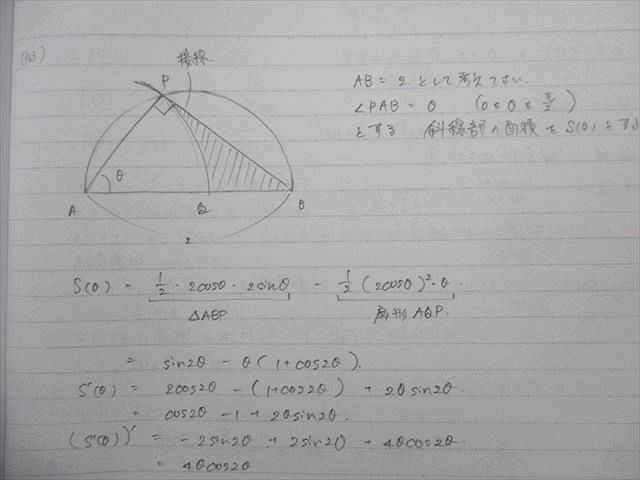 (163)
接線
P
θ
A
Q
B
2
AB = 2 として考えてよい.
∠PAB = θ (0 ≤ θ ≤ π/2)
とする 斜線部の面積を S(θ) とする
S(θ) = 1/2 · 2cosθ · 2sinθ - 1/2 (2cosθ)² · θ.
△ABP
扇形 AQP.
= sin2θ - θ(1+cos2θ).
S'(θ) = 2cos2θ - (1+cos2θ) + 2θsin2θ.
= cos2θ - 1 + 2θsin2θ.
(S'(θ))' = -2sin2θ + 2sin2θ + 4θcos2θ.
= 4θcos2θ